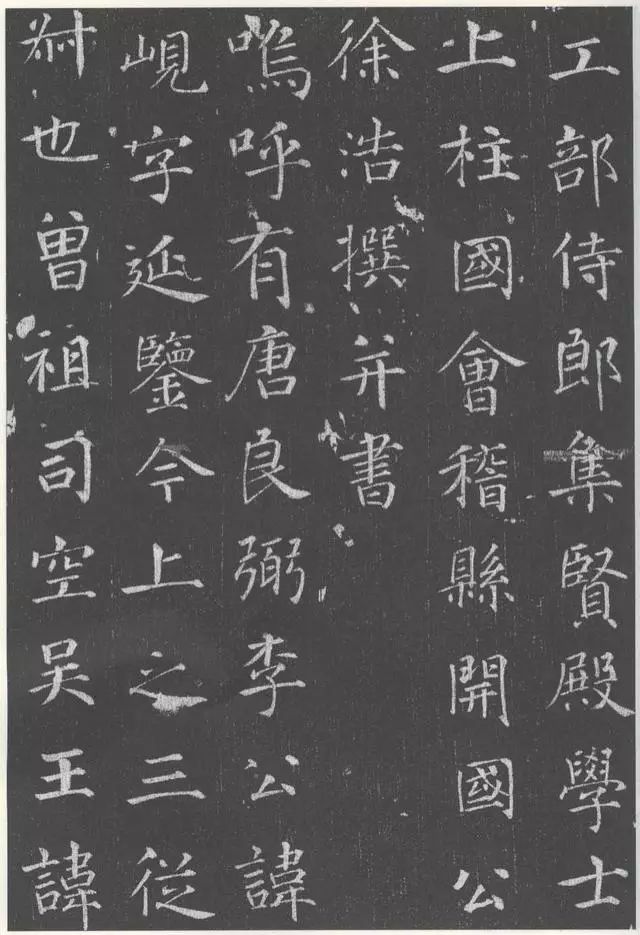 工部侍郎集賢殿學士
上柱國會稽縣開國公
徐浩撰并書
嗚呼有唐良弼李公諱
峴字延鑒今上之三從
𠦑也曽祖司空吴王諱